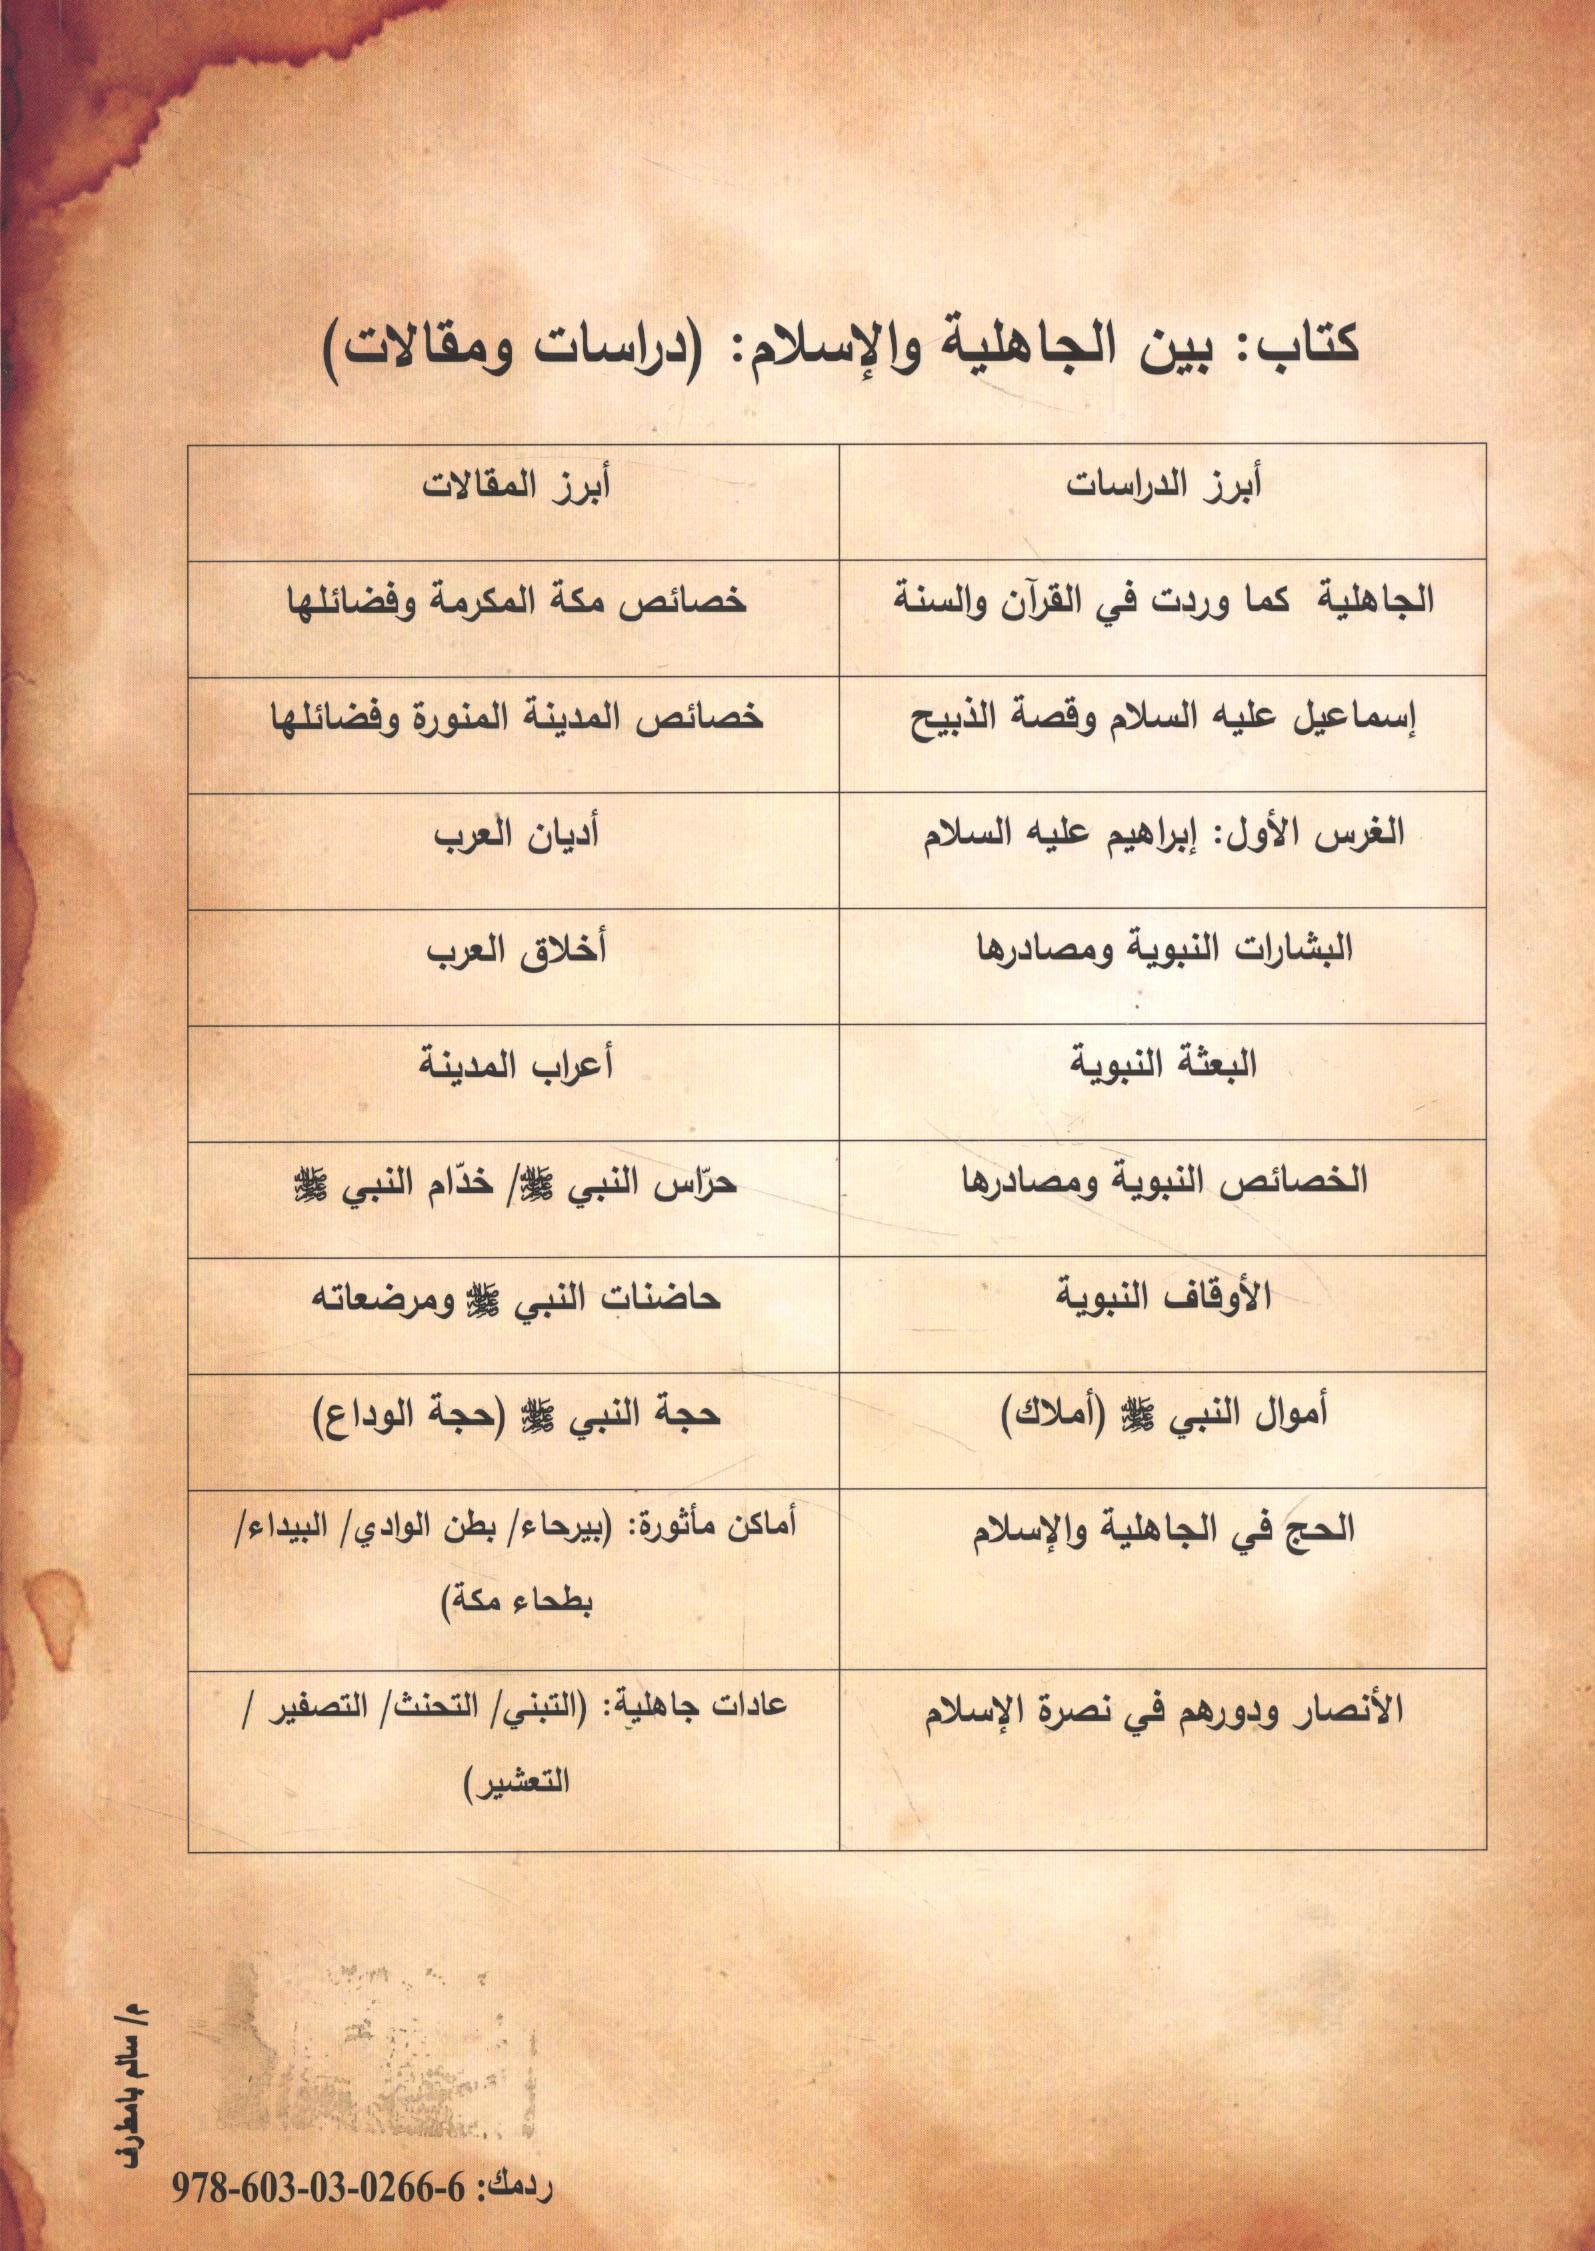 كتاب: بين الجاهلية والإسلام: (دراسات ومقالات)
أبرز الدراسات
أبرز المقالات
الجاهلية كما وردت في القرآن والسنة
خصائص مكة المكرمة وفضائلها
إسماعيل عليه السلام وقصة الذبيح
خصائص المدينة المنورة وفضائلها
الغرس الأول: إبراهيم عليه السلام
أديان العرب
البشارات النبوية ومصادرها
أخلاق العرب
البعثة النبوية
أعراب المدينة
الخصائص النبوية ومصادرها
حرّاس النبي ﷺ/ خدّام النبي ﷺ
الأوقاف النبوية
حاضنات النبي ﷺ ومرضعاته
أموال النبي ﷺ (أملاك)
حجة النبي ﷺ (حجة الوداع)
الحج في الجاهلية والإسلام
أماكن مأثورة: (بيرحاء/ بطن الوادي/ البيداء/
بطحاء مكة)
الأنصار ودورهم في نصرة الإسلام
عادات جاهلية: (التبني/ التحنث/ التصفير /
التعشير)
م/ سالم بامطرف
ردمك: 6-0266-03-603-978